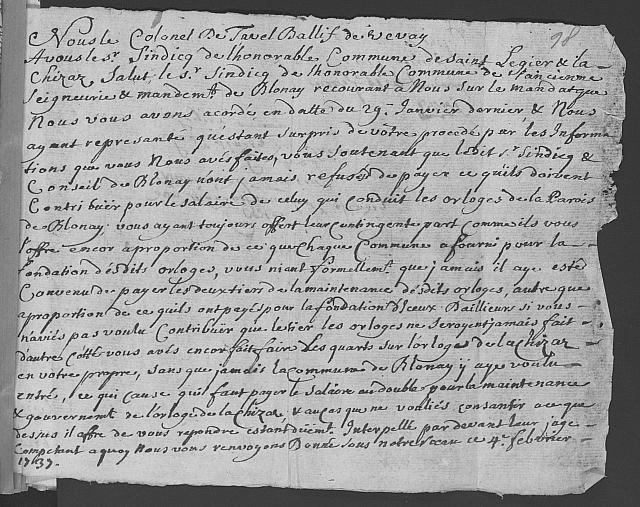 98
Nous le Colonel De Tavel Ballif de Vevay
A vous le sr. Sindicq de lhonorable Commune de Saint Legier & la
Chizaz Salut, le sr. Sindicq de lhonorable Commune de lancienne
Seigneurie & mandemt. de Blonay recourant a Nous sur le mandat que
Nous vous avons acordé en datte du 29e. Janvier dernier & Nous
ayant representé questant surpris de vôtre procedé par les Informa
tions que vous Nous avés faites, vous soutenant que ledit sr. Sindicq &
Conseil de Blonay n'ont jamais refusés de payer ce quils doivent
Contribüer pour le salaire de celuy qui conduit les orloges de la Parois
de Blonay. vous ayant toujours offert leur contingente part comme ils vous
l'offre encor a proportion de ce que chaque Commune a fourni pour la
fondation désdits orloges, vous niant formellemt. que jamais il aye esté
Convenu de payer les deux tier de la maintenance désdits orloges, autre que
a proportion de ce quils ont payés pour la fondation d'Iceux Dailleurs si vous
n'aviés pas voulu Contribuër que le tier les orloges ne seroyent jamais fait
d'autre Cotté vous avés encor fait faire Les quarts sur l'orloges de la Chizaz
en vôtre propre, sans que jamais la commune de Blonay ij aye voulu
entré, ce qui cause quil faut payer le salaire au double pour la maintenance
& gouvernemt. de l'orloge de la Chizaz, & au cas que ne vouliés consantir a ce que
dessus il offre de vous repondre estant düemt. Interpellé par devant leur juge
Competant a quoy Nous vous renvoyons Donné sous notre sceau ce 4e. febvrier
1737.